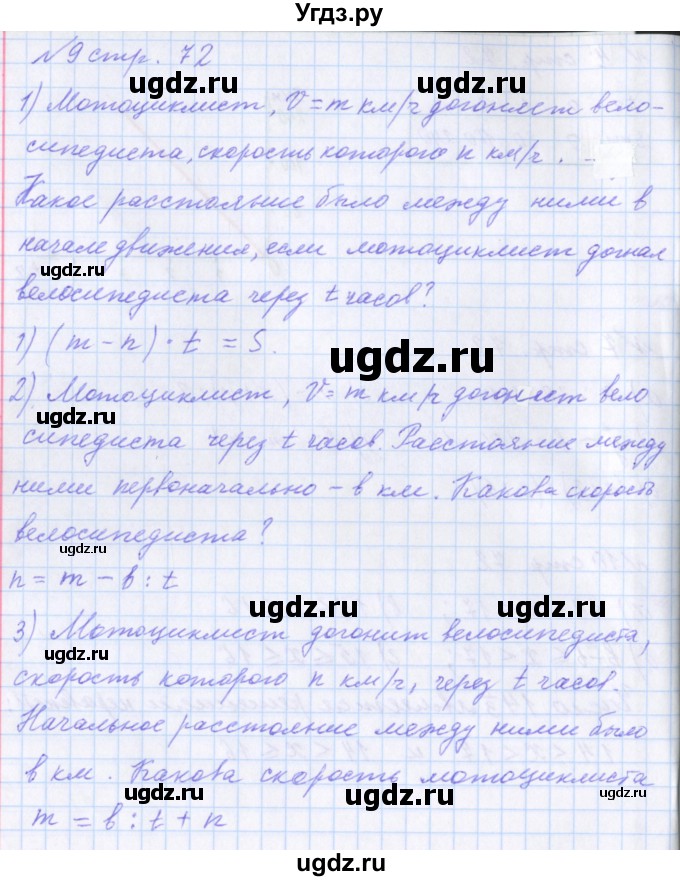 Угдз.ру
№9 стр. 72
ugdz.ru ugdz.ru
1) Мотоциклист, V=m км/ч догоняет вело-
сипедиста, скорость которого n км/ч.
ugdz.ru
Какое расстояние было между ними в
начале движения, если мотоциклист догнал
ugdz.ru
велосипедиста через t часов?
ugdz.ru
1) (m-n)·t=S.
ugdz.ru
2) Мотоциклист, V=m км/ч догоняет вело
ugdz.ru
сипедиста через t часов. Расстояние между
ними первоначально - в км. Какова скорость
велосипедиста?
ugdz.ru
n=m-в:t
ugdz.ru ugdz.ru
3) Мотоциклист догонит велосипедиста,
ugdz.ru
скорость которого n км/ч, через t часов.
Начальное расстояние между ними было
в км. Какова скорость мотоциклиста
ugdz.ru ugdz.ru
m=в:t+n
ugdz.ru